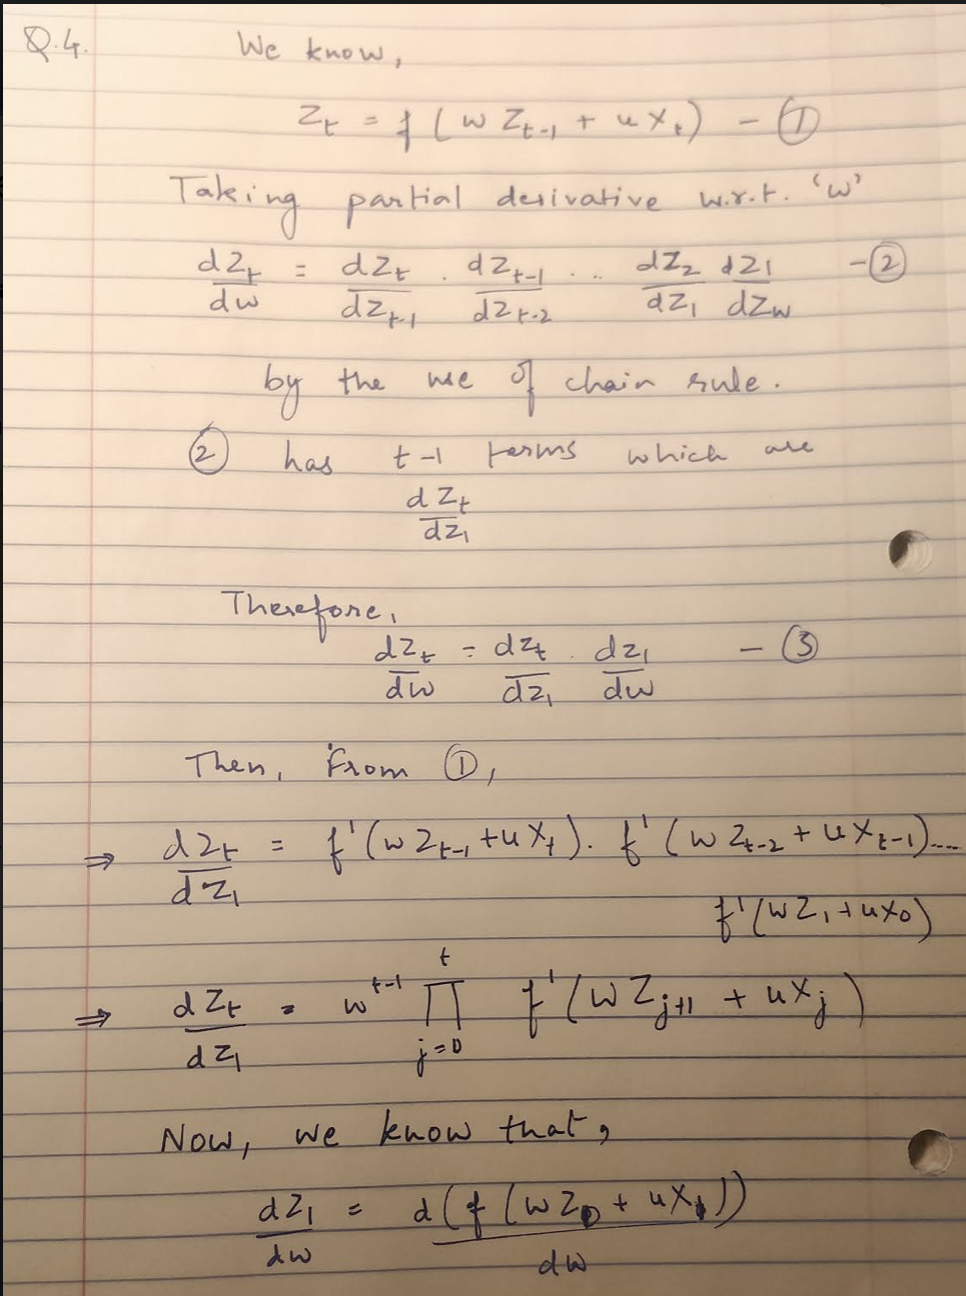 Q.4. We know,
Z_t = f(w Z_{t-1} + u X_t) - ①
Taking partial derivative w.r.t. 'w'
dZ_t/dw = dZ_t/dZ_{t-1} . dZ_{t-1}/dZ_{t-2} ... dZ_2/dZ_1 dZ_1/dZ_w - ②
by the use of chain rule.
② has t-1 terms which are
dZ_t/dZ_1
Therefore,
dZ_t/dw = dZ_t/dZ_1 . dZ_1/dw - ③
Then, From ①,
⇒ dZ_t/dZ_1 = f'(w Z_{t-1} + u X_t). f'(w Z_{t-2} + u X_{t-1})....
f'(w Z_1 + u X_0)
⇒ dZ_t/dZ_1 = w^{t-1} ∏_{j=0}^{t} f'(w Z_{j+1} + u X_j)
Now, we know that,
dZ_1/dw = d(f(w Z_0 + u X_1))/dw